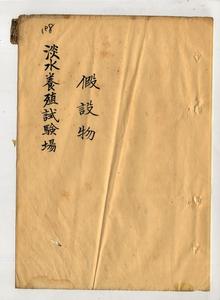 108
假設物
淡水養殖試験場